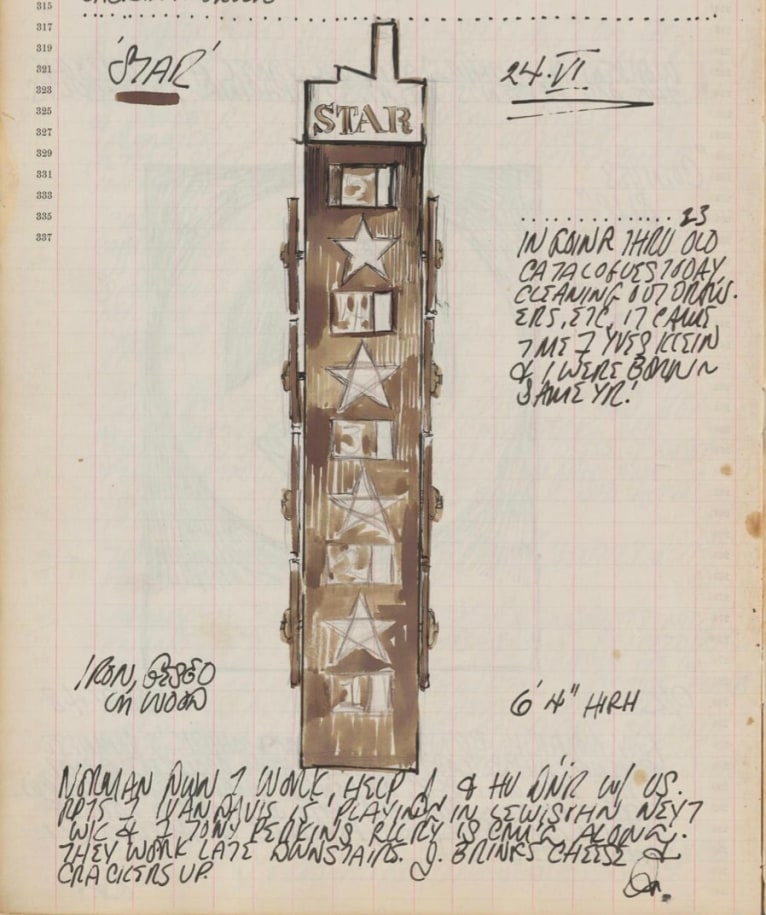 315
317
319
321
323
325
327
329
331
333
335
337
'STAR'
24.VI
STAR
2
23
IN GOING THRU OLD
CATALOGUES TODAY,
CLEANING OUT DRAW-
ERS, ETC, IT CAME
T ME T YVES KLEIN
& I WERE BORN IN
SAME YR!
IRON, GESSO
ON WOOD
6' 4" HIGH
NORMAN DWN T WORK, HELP J, & HV DNR W/ US.
RPTS T IVAN DAVIS IS PLAYING IN LEWISOHN NEXT
WK & T TONY PERKINS IS ALONG.
THEY WORK LATE DWNSTAIRS. J. BRINGS CHEESE &
CRACKERS UP.